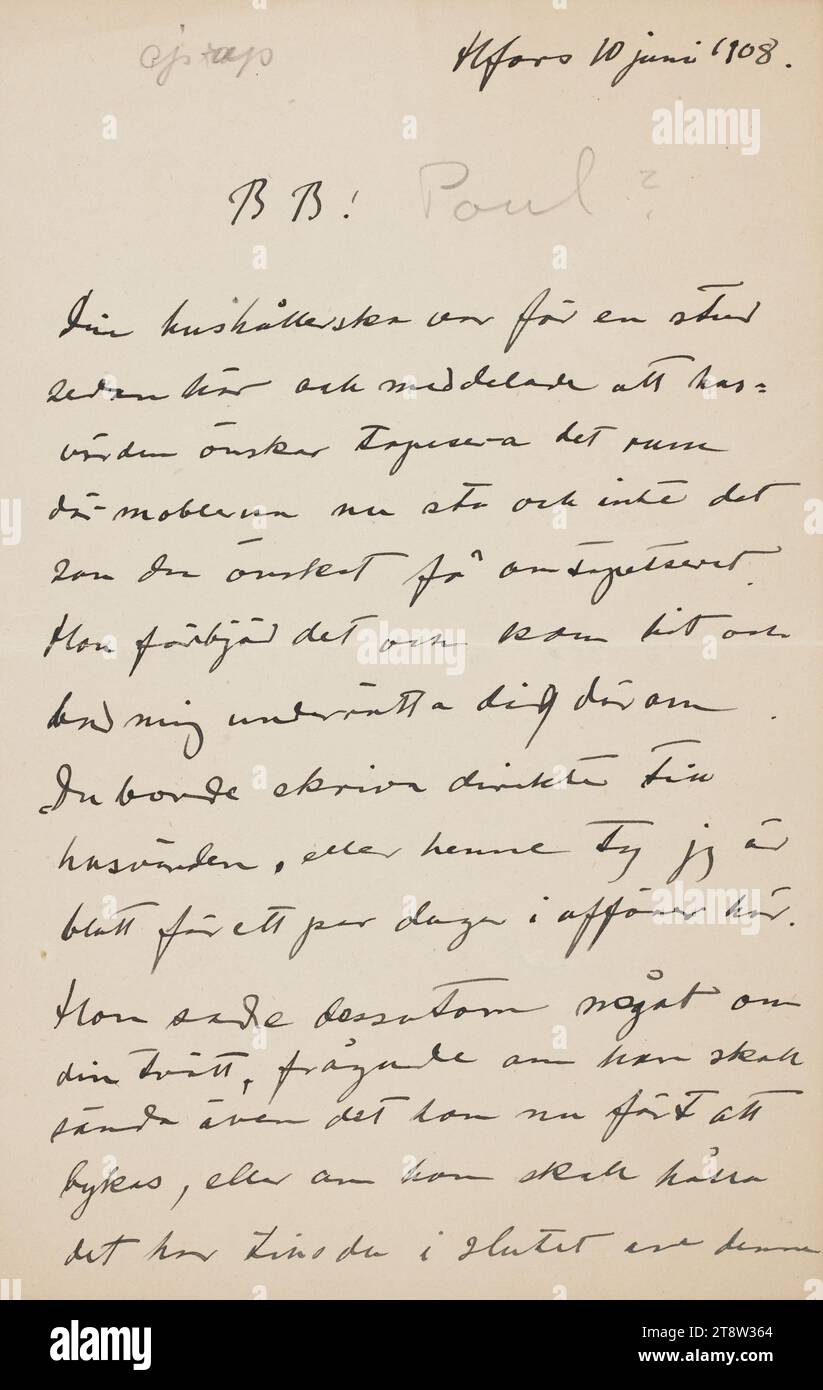 Hfors 10 juni 1908.
B B! Poul?
Din hushållerska var för en stund
sedan här och meddelade att hus=
värden önskar tapisera det rum
där möblerna nu stå och inte det
som du önskat få omtapetserat.
Hon förbjöd det och kom hit och
bad mig underrätta dig därom.
Du borde skriva direkte till
husvärden, eller henne ty jag är
blott för ett par dagar i affärer här.
Hon sade dessutom något om
din tvätt, frågande om hon skall
sända även det hon nu fört att
bykas, eller om hon skall hålla
det här tills du i slutet av denna
alamy
Image ID: 2T8W364
www.alamy.com